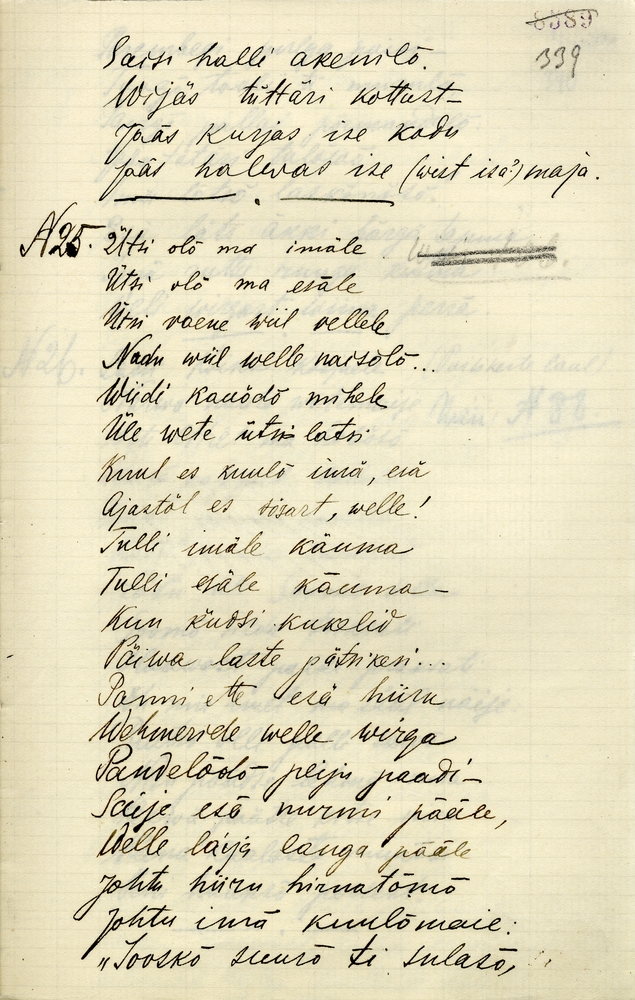 8389
339
Saisi halli akenilõ.
Wijäs tüttäri kottust—
Jääs kurjas ise kodu
Jääs halwas ise (wist isa?) maja.
N25. Ütsi olõ ma imäle
Ütsi olõ ma esäle
Ütsi vaene wiil vellele
Nadu wiil welle naisõlõ...
Wiidi kauõdõ mihele
Üle wete ütsi latsi
Kuul es kuulõ imä, esä
Ajastõl es sõsart, welle!
Tulli imäle käuma
Tulli esäle käuma—
Kun küdsi kukelid
Päiwa laste pätsikesi...
Panni ette esä hiiru
Wehmeride welle wirga
Pandelõdõ peiju paadi—
Saije esä nurmi pääle,
Welle laija langa pääle
Johtu hiiru hirnatõmõ
Johtu imä kuulõmaie:
„Jooskõ suurõ ti sulasõ,